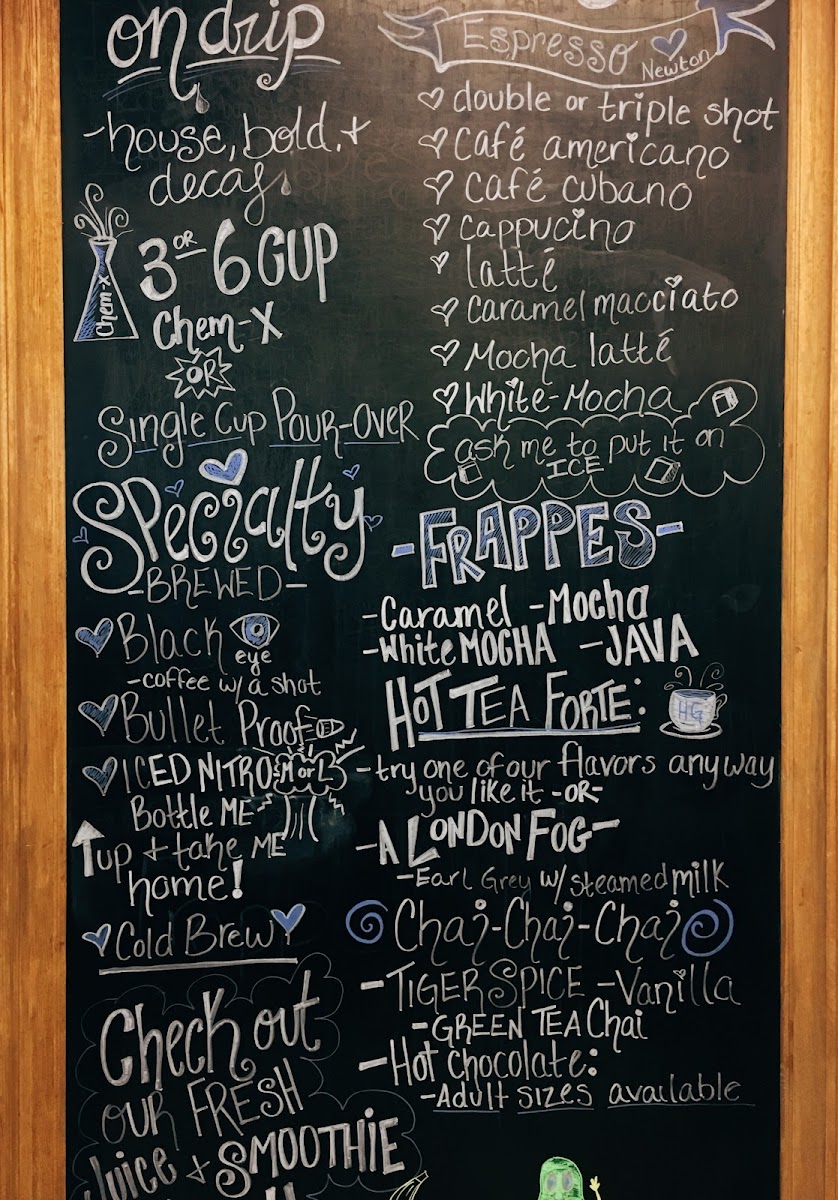 on drip
-house, bold, +
decaf
Chem-X
3 or 6 CUP
Chem-X
OR
Single Cup Pour-over
Specialty
-BREWED-
Black eye
-coffee w/ a shot
Bullet Proof
ICED NITRO M or L
Bottle ME
up + take ME
home!
Cold Brew
Check out
our FRESH
Juice + SMOOTHIE
Espresso
Newton
double or triple shot
Café americano
Café cubano
Cappucino
latté
Caramel macciato
Mocha latté
White-Mocha
ask me to put it on
ICE
-FRAPPES-
-Caramel -Mocha
-White MOCHA -JAVA
HOT TEA FORTE:
HG
-try one of our flavors anyway
you like it -OR-
-A LONDON FOG-
-Earl Grey w/ steamed milk
Chai-Chai-Chai
-TIGER SPICE -Vanilla
-GREEN TEA Chai
-Hot chocolate:
-Adult sizes available